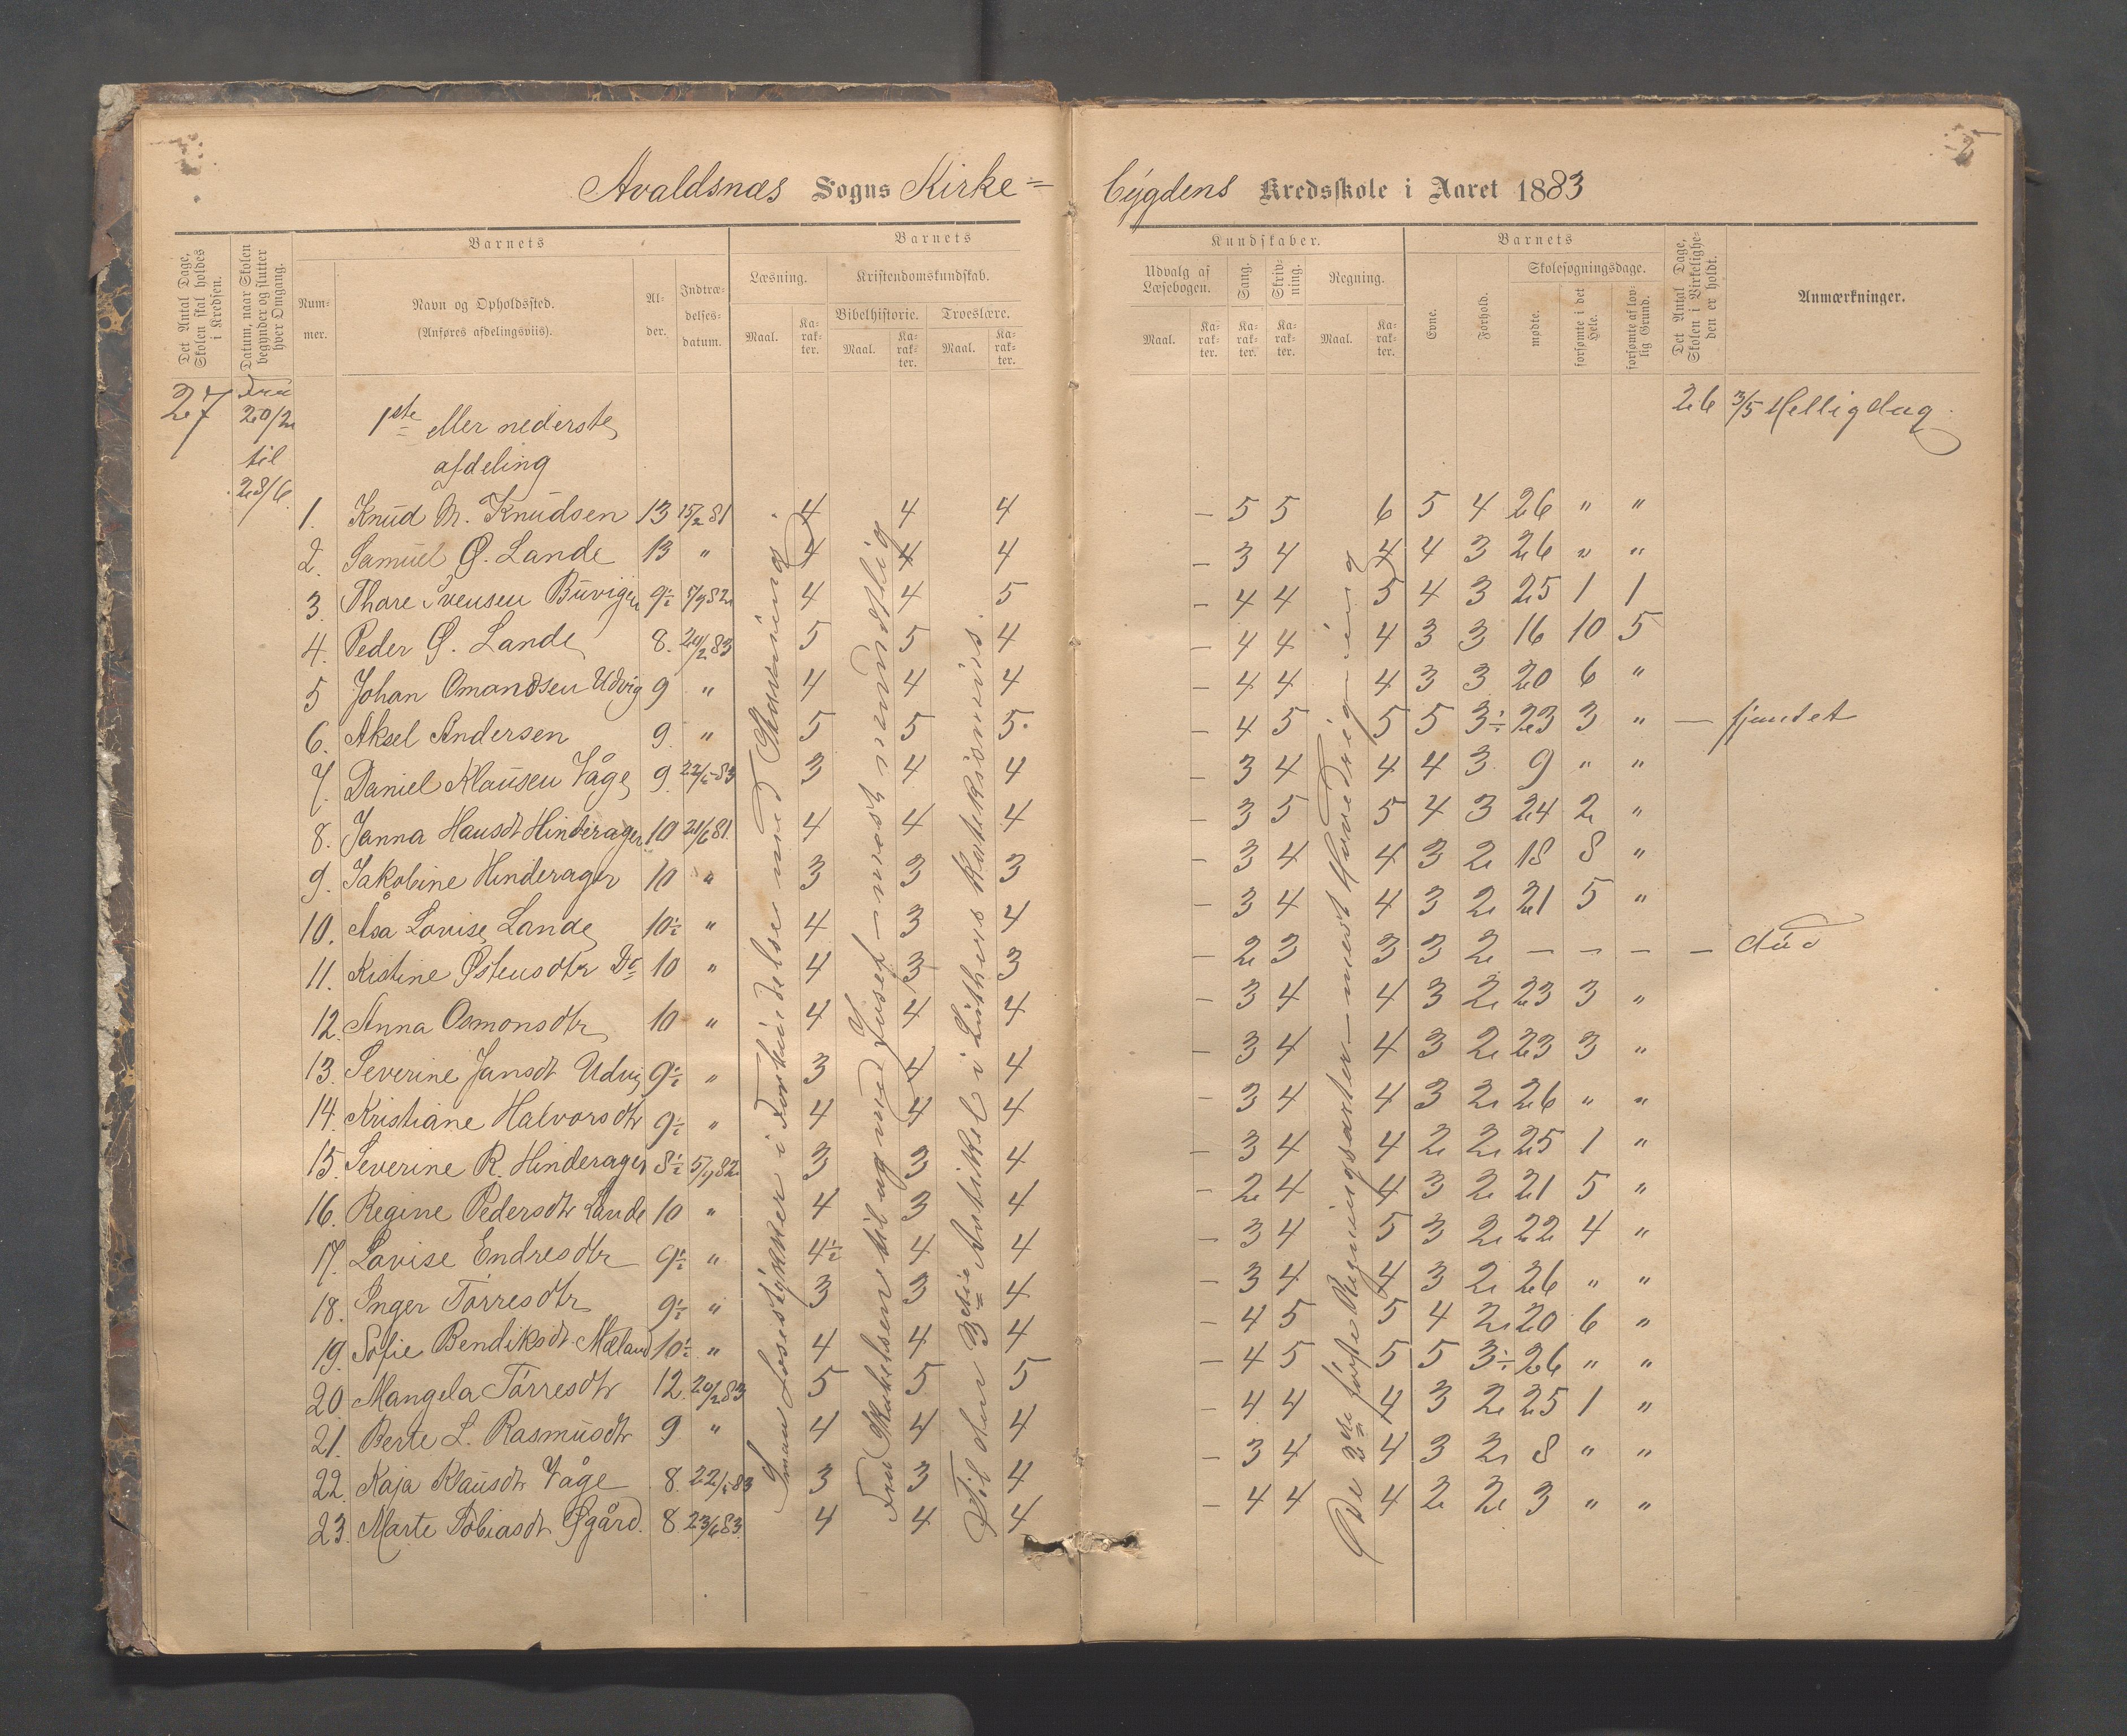 Avaldsnæs Sogns Kirke=
bygdens Kredsskole i Aaret 1883
2
Det Antal Dage, Skolen skal holdes i Kredsen.
Datum, naar Skolen begynder og slutter hver Omgang.
Barnets
Nummer.
Navn og Opholdssted.
(Anføres afdelingsviis).
Alder.
Indtrædelsesdatum.
Barnets
Læsning.
Maal.
Karakter.
Kristendomskundskab.
Bibelhistorie.
Maal.
Karakter.
Troeslære.
Maal.
Karakter.
Kundskaber.
Udvalg af Læsebogen.
Maal.
Karakter.
Sang.
Karakter.
Skrivning.
Karakter.
Regning.
Maal.
Karakter.
Barnets
Evne.
Forhold.
Skolesøgningsdage.
mødte.
forsømte i det Hele.
forsømte af lovlig Grund.
Det Antal Dage, Skolen i Virkeligheden er holdt.
Anmærkninger.
27 Fra 20/2 til 28/6
1ste eller nederste
afdeling
26 3/5 Helligdag.
1. Knud M. Knudsen 13 15/2 81 4 4 4 – 5 5 6 5 4 26 " "
2. Samuel Ø. Lande 13 " 4 4 4 – 3 4 4 4 3 26 " "
3. Thore Svensen Buvigen 9½ 5/9 82 4 4 5 – 4 4 5 4 3 25 1 1
4. Peder Ø. Lande 8. 20/2 83 5 5 4 – 4 4 4 3 3 16 10 5
5 Johan Omandsen Udvig 9 " 4 4 4 – 4 4 4 3 3 20 6 "
6. Aksel Andersen 9. " 5 5 5. – 4 5 5 5 3½ 23 3 " — fjantet
7. Daniel Klausen Våge 9. 22/5 83 3 4 4 – 3 4 4 4 3 9 " "
8. Janna Hansdt Hinderager 10 21/6 81. 4 4 4 – 3 5 5 4 3 24 2 "
9. Jakobine Hinderager 10 " 3 3 3 – 3 4 4 3 2 18 8 "
10. Åsa Lovise Lande 10½ " 4 3 4 – 3 4 4 3 2 21 5 "
11. Kistine Østensdtr Do 10 " 4 3 3 – 2 3 3 3 2 – – – – død
12. Anna Osmonsdtr 10 " 4 4 4 – 3 4 4 3 2 23 3 "
13. Severine Jansdt Udvig 9½ " 3 4 4 – 3 4 4 3 2 23 3 "
14. Kristiane Halvorsdtr 9½ " 4 4 4 – 3 4 4 3 2 26 " "
15. Severine R. Hinderager 8½ 5/9 82 3 3 4 – 3 4 4 2 2 25 1 "
16. Regine Pedersdtr Lande 10 " 4 3 4 – 2 4 4 3 2 21 5 "
17. Lovise Endresdtr 9½ " 4½ 4 4 – 3 4 5 3 2 22 4 "
18. Inger Torresdtr 9½ " 3 3 4 – 3 4 4 3 2 26 " "
19. Sofie Bendiksdt. Mæland 10½ " 4 4 4 – 4 5 5 4 2 20 6 "
20. Mangela Torresdtr 12. 20/2 83 5 5 5 – 4 5 5 5 3½ 26 " "
21. Berte L. Rasmusdtr 9 " 4 4 4 – 4 4 4 3 2 25 1 "
22. Kaja Klausdtr Våge 8. 22/5 83 3 3 4 – 3 4 4 3 2 8 " "
23. Marte Tobiasdt Øgård. 8. 23/6 83. 4 4 4 – 4 4 4 2 2 3 " "
Smaa Læsestykker i Forbindelse med Stavning.
Fra Skabelsen til og med Josef – mest mundtlig
Til den 3die Artikkel i Luthers Katekismus.
De 2de første Regningsarter – mest Hovedregning